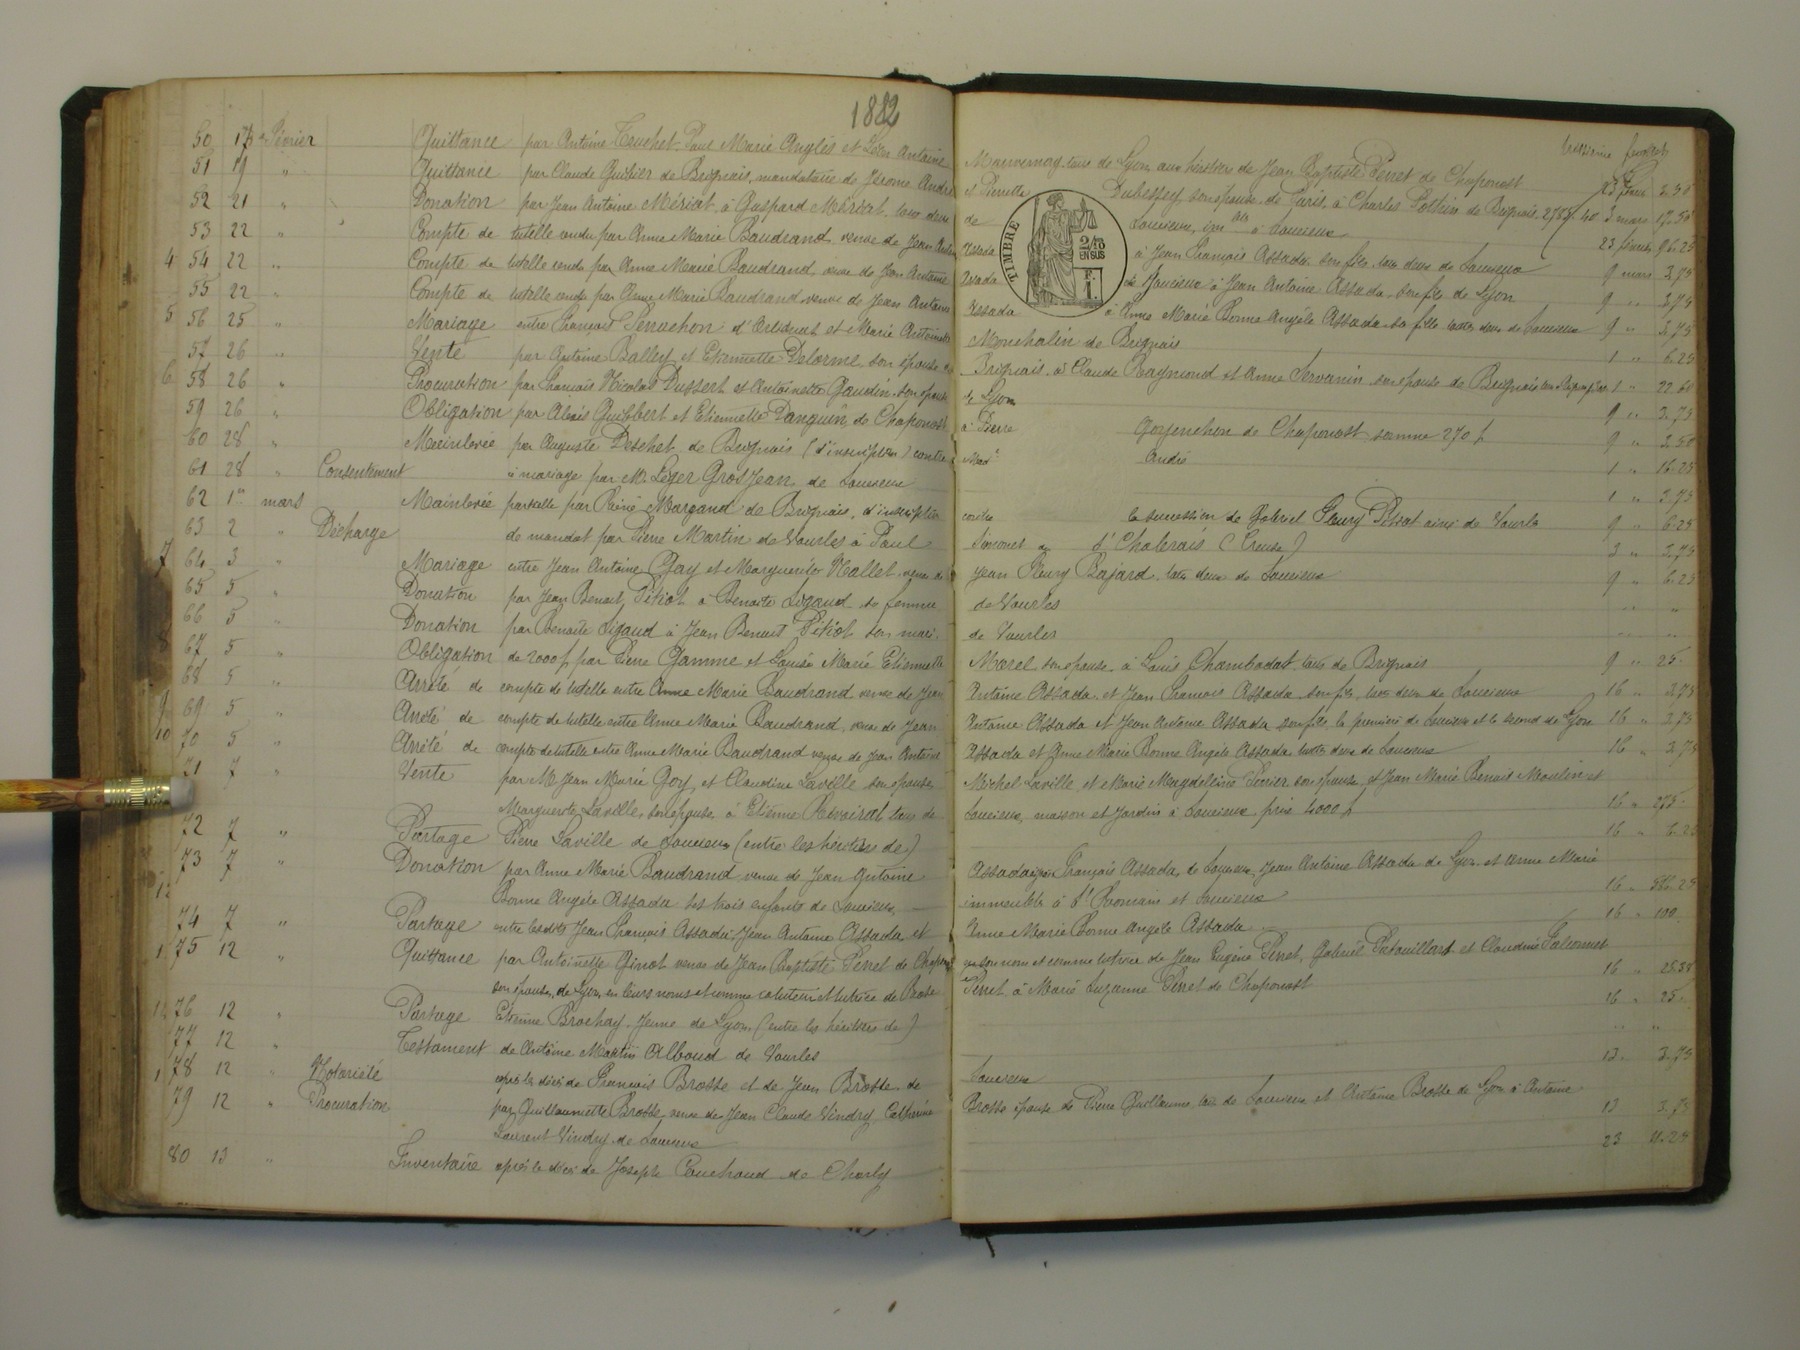 1882
troisième feuillet
50 17 Février Quittance par Antoine Truchet Paul Marie Anglès et Léon Antoine Maervernay tous de Lyon aux héritiers de Jean Baptiste Perret de Chaponost 23 2.50
51 19 " Quittance par Claude Quibier de Brignais, mandataire de Jérome André et Pierrette Dubessey son épouse de Paris, à Charles Pothin de Brignais 3 mars 17.50
52 21 " Donation par Jean Antoine Mériat à Gaspard Mériat tous deux de Soucieux, à Soucieux 23 février 96.25
53 22 " Compte de tutelle rendu par Anne Marie Baudrand veuve de Jean Antoine Assada à Jean François Assada son fils tous deux de Soucieux 9 mars 3.75
4 54 22 " Compte de tutelle rendu par Anne Marie Baudrand veuve de Jean Antoine Assada de Soucieux à Jean Antoine Assada son fils de Lyon 9 " 3.75
55 22 " Compte de tutelle rendu par Anne Marie Baudrand veuve de Jean Antoine Assada à Anne Marie Bonne Angèle Assada sa fille toutes deux de Soucieux 9 " 3.75
TIMBRE
2/10 EN SUS
F. 1.
5 56 25 " Mariage entre François Senachon d' et Marie Antoinette Monchalin de Brignais 1 " 6.25
57 26 " Vente par Antoine Balley et Etiennette Delorme son épouse Brignais à Claude Raymond et Anne Servanin son épouse de Brignais 1 " 22.60
6 58 26 " Procuration par François Nicolas Dussert et Antoinette Gaudin son épouse de Lyon 9 " 3.75
59 26 " Obligation par Alexis Guibbert et Etiennette Danguin de Chaponost à Pierre Gorjenchon de Chaponost somme 270 f 9 " 2.50
60 28 " Mainlevée par Auguste Deschet de Brignais (d'inscription) contre Made André 1 " 16.25
61 28 " Consentement à mariage par M. Léger GrosJean de Soucieux 1 " 3.75
62 1er mars Mainlevée partielle par Réné Margand de Brignais, d'inscription contre la succession de Gabriel Fleury Pitrat ainé de Vourles 9 " 6.25
63 2 " Décharge de mandat par Pierre Martin de Vourles à Paul Simonet de d'Chalerais (Creuse) 3 " 3.75
7 64 3 " Mariage entre Jean Antoine Gay et Marguerite Nallet veuve de Jean Fleury Bajard tous deux de Soucieux 9 " 6.25
65 5 " Donation par Jean Benoit Pitiot à Benoite Ligaud sa femme de Vourles " "
66 5 " Donation par Benoite Ligaud à Jean Benoit Pitiot son mari de Vourles " "
67 5 " Obligation de 2000 f par Pierre Gamme et Louise Marie Etiennette Marel son épouse à Louis Chambadat tous de Brignais 9 " 25.
68 5 " Arrêté de compte de tutelle entre Anne Marie Baudrand veuve de Jean Antoine Assada et Jean François Assada son fils tous deux de Soucieux 16 " 3.75
9 69 5 " Arrêté de compte de tutelle entre Anne Marie Baudrand veuve de Jean Antoine Assada et Jean Antoine Assada son fils le premier de Soucieux et le second de Lyon 16 " 3.75
10 70 5 " Arrêté de compte de tutelle entre Anne Marie Baudrand veuve de Jean Antoine Assada et Anne Marie Bonne Angèle Assada toutes deux de Soucieux 16 " 3.75
71 7 " Vente par M. Jean Marie Goy et Claudine Laville son épouse Michel Laville et Marie Magdeleine Perrier son épouse, et Jean Marie Benoit Moulin et
Marguerite Laville son épouse à Etienne Revoirat tous de Soucieux, maison et jardin à Soucieux prix 4000 f 16 " 275.
72 7 " Partage Pierre Laville de Soucieux (entre les héritiers de) 16 " 6.25
73 7 " Donation par Anne Marie Baudrand veuve de Jean Antoine Assada à Jean François Assada, de Soucieux, Jean Antoine Assada de Lyon et Anne Marie
12 Bonne Angèle Assada ses trois enfants de Soucieux immeuble à St Romain et Soucieux 16 " 566.25
74 7 " Partage entre lesdits Jean François Assada Jean Antoine Assada et Anne Marie Bonne Angèle Assada 16 " 100.
75 12 " Quittance par Antoinette Givot veuve de Jean Baptiste Perret de Chaponost en son nom et comme tutrice de Jean Eugène Perret, Gabriel Patouillard et Claudine Falconnet
son épouse, de Lyon en leurs noms et comme cotuteur et tutrice de Perret à Marie Suzanne Perret de Chaponost 16 " 25.38
76 12 " Partage Etienne Brochay Jeune de Lyon (entre les héritiers de) 16 " 25.
77 12 " Testament de Antoine Martin Alboud de Vourles " "
78 12 " Notariété après les décès de François Brosse et de Jean Brosse de Soucieux 13. 3.75
79 12 " Procuration par Guillaumette Brosse veuve de Jean Claude Vindry Catherine Brosse épouse de Pierre Guillaume tous de Soucieux et Antoine Brosse de Lyon à Antoine
Laurent Vindry de Soucieux 13 3.75
80 13 " Inventaire après le décès de Joseph Couchoud de Charly 23 11.25